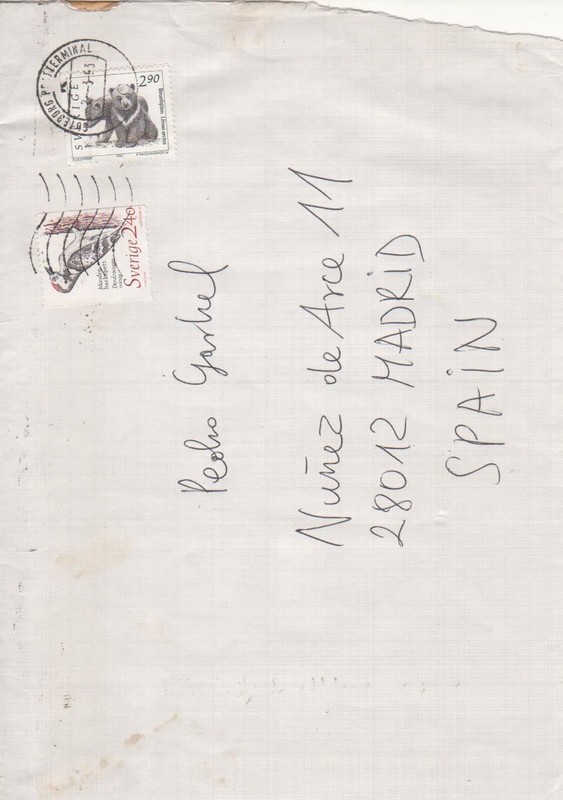 GÖTEBORG POSTTERMINAL
2 -3 93
SVERIGE
2.90
Sverige 2.40
Pedro Garhel
Nuñez de Arce 11
28012 MADRID
SPAIN